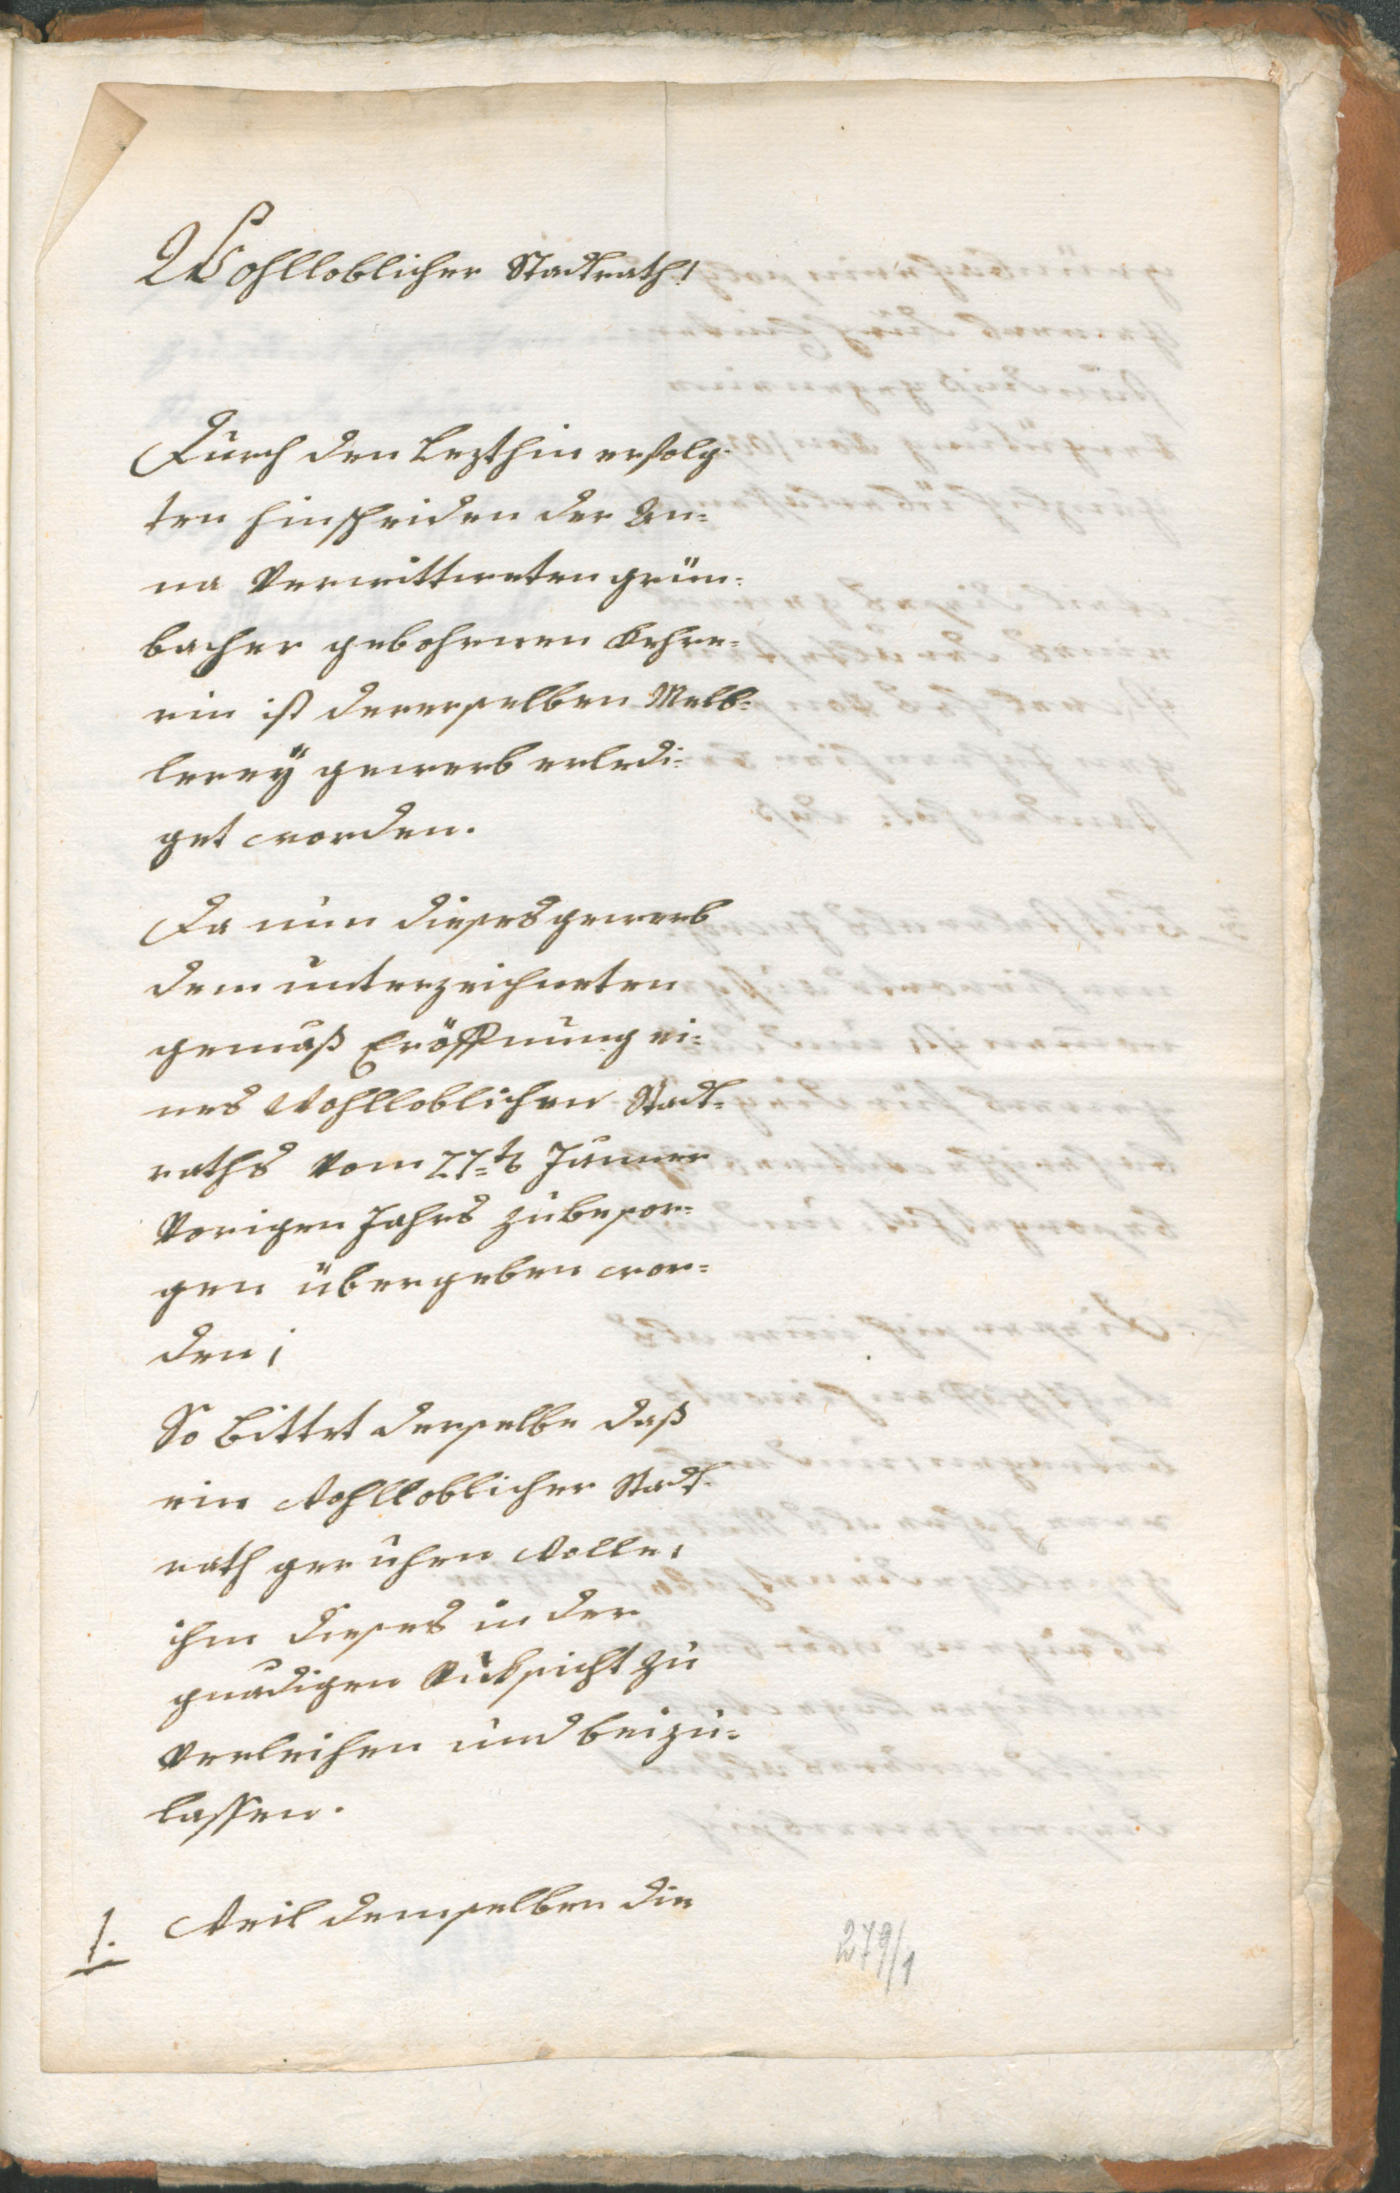 Wohlloblicher Stadtrath!
Durch den Lezthin erfolg-
ten Hinscheiden der An-
na Verwittweten grün-
bacher gebohrnen Lehre-
rin ist derenselben Melb-
lereÿ gewerb erledi-
get worden.
Da nun dieses gewerb
dem unterzeichneten
gemäß Eröffnung ei-
nes Wohlloblichen Stadt-
raths Vom 27ten Jänner
Vorigen Jahrs zubesor-
gen übergeben wor-
den;
So bittet derselbe daß
ein Wohlloblicher Stadt-
rath geruhen Wolle,
ihm dieses in der
gnädigen Rücksicht zu
Verleihen und beizu-
lassen.
1. Weil demselben die
279/1